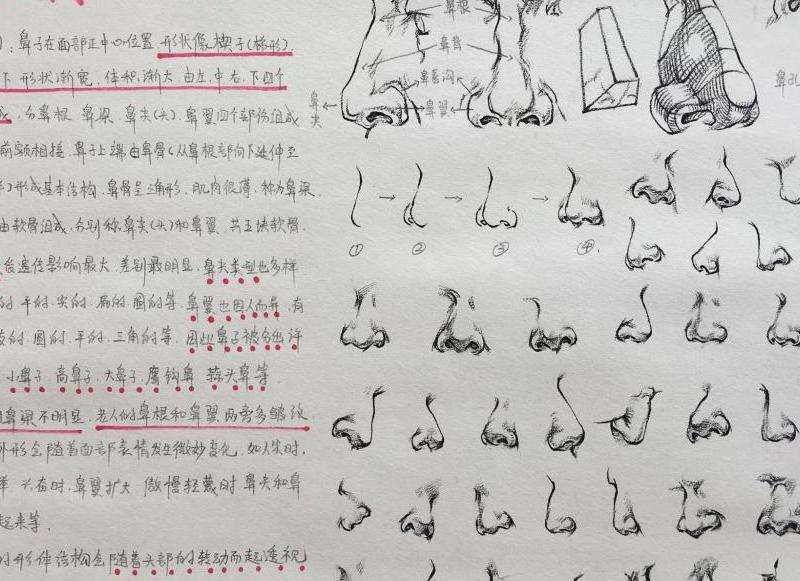 鼻子在面部正中心位置 形状像楔子(梯形)
下 形状渐宽. 体积渐大 由左.中.右.下四个
分鼻根. 鼻梁. 鼻尖(头). 鼻翼四个部份组成
前额相接. 鼻子上端由鼻骨(从鼻根部向下延伸至
形成基本结构. 鼻骨呈三角形. 肌肉很薄. 称为鼻梁
由软骨组成. 分别称鼻尖(头)和鼻翼. 共五块软骨.
遗传影响最大. 差别最明显. 鼻尖类型也多样
的. 平的. 尖的. 扁的. 圆的等. 鼻翼也因人而异. 有
的. 圆的. 平的. 三角的等. 因此鼻子被分出许
小鼻子. 高鼻子. 大鼻子. 鹰钩鼻 蒜头鼻等
鼻梁不明显. 老人的鼻根和鼻翼两旁多皱纹
外形会随着面部表情发生微妙变化. 如大笑时.
兴奋时. 鼻翼扩大 傲慢轻蔑时 鼻尖和鼻
起来等.
形体结构会随着头部的转动而起透视
鼻根
鼻背
鼻唇沟
鼻翼
鼻尖
鼻孔
① ② ③ ④